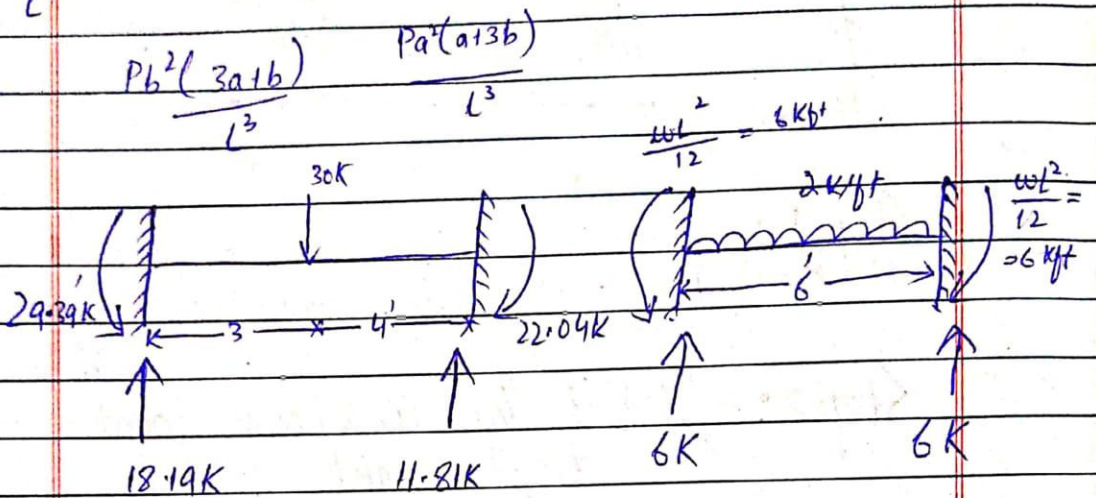 L
Pb²(3a+b) / L³    Pa²(a+3b) / L³
wL² / 12 = 6 Kft
30K
2 K/ft
wL² / 12 =
=6 Kft
29.39'K
3
4'
22.04K
6'
18.19K
11.81K
6K
6K